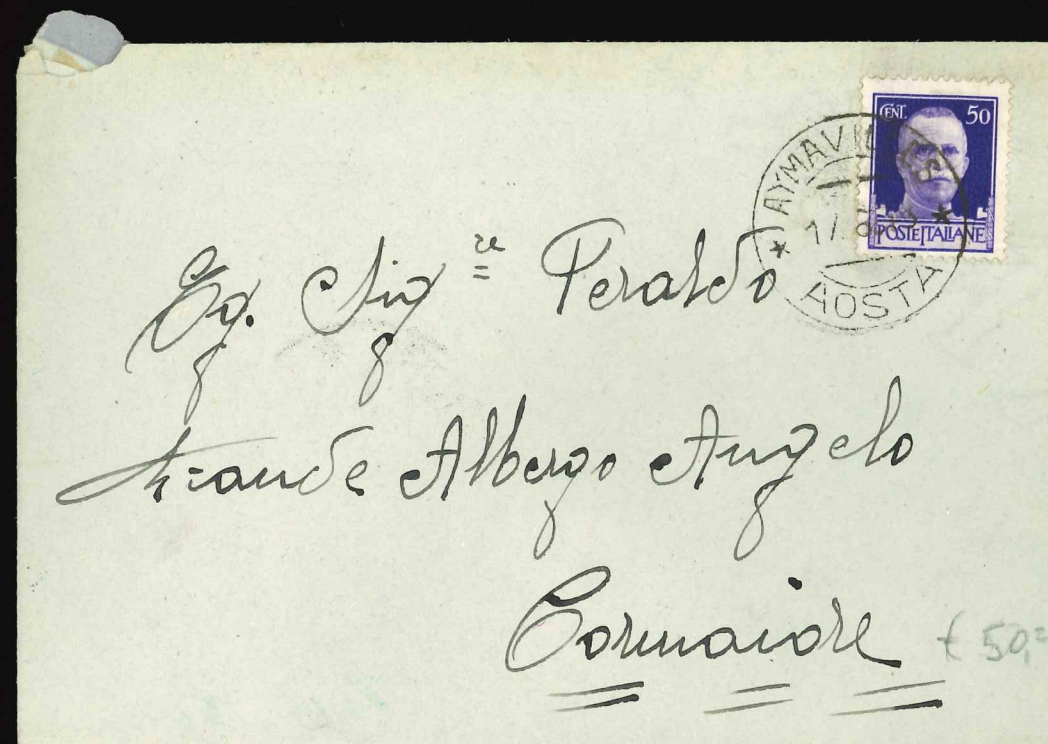 CENT. 50
POSTE ITALIANE
AYMAVILLES
AOSTA
Eg. Sigre Peraldo
Grande Albergo Angelo
Cormaiore
£ 50,=